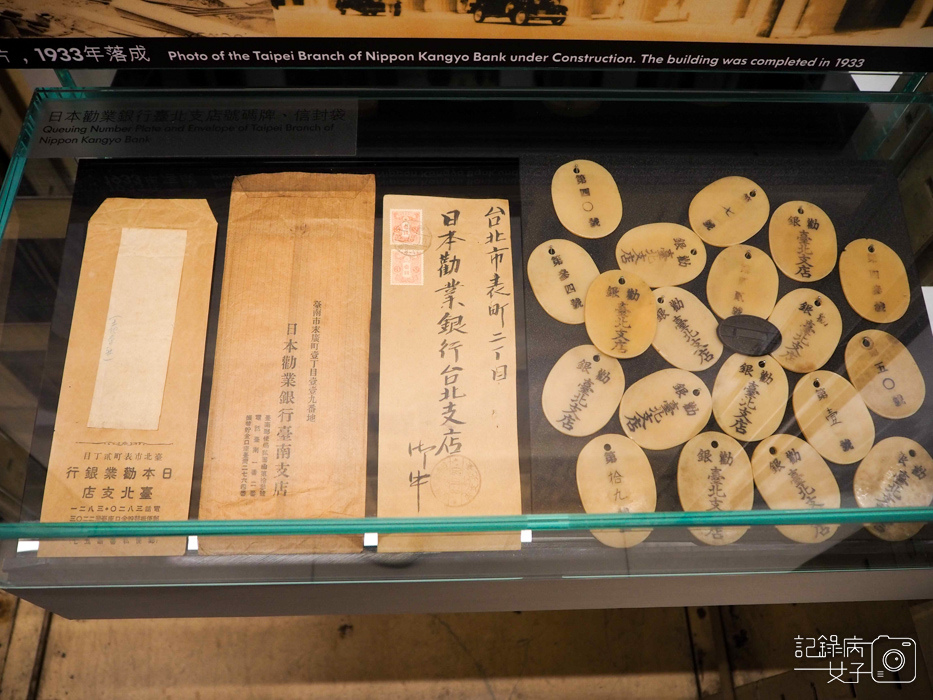 ,1933年落成 Photo of the Taipei Branch of Nippon Kangyo Bank under Construction. The building was completed in 1933
日本勸業銀行臺北支店號碼牌、信封袋
Queuing Number Plate and Envelope of Taipei Branch of
Nippon Kangyo Bank
臺北市表町貳丁目
日本勸業銀行
臺北支店
臺南市末廣町壹丁目壹壹九番地
日本勸業銀行臺南支店
台北市表町二丁目
日本勸業銀行台北支店
御中
第四〇號
第七號
勸銀
臺北支店
第參四號
勸銀
勸銀
臺北支店
勸銀
臺北支店
臺北支店
勸銀
臺北支店
勸銀
臺北支店
勸銀
臺北支店
五〇號
第五號
第拾九
勸銀
臺北支店
勸銀
臺北支店
記錄病
女子